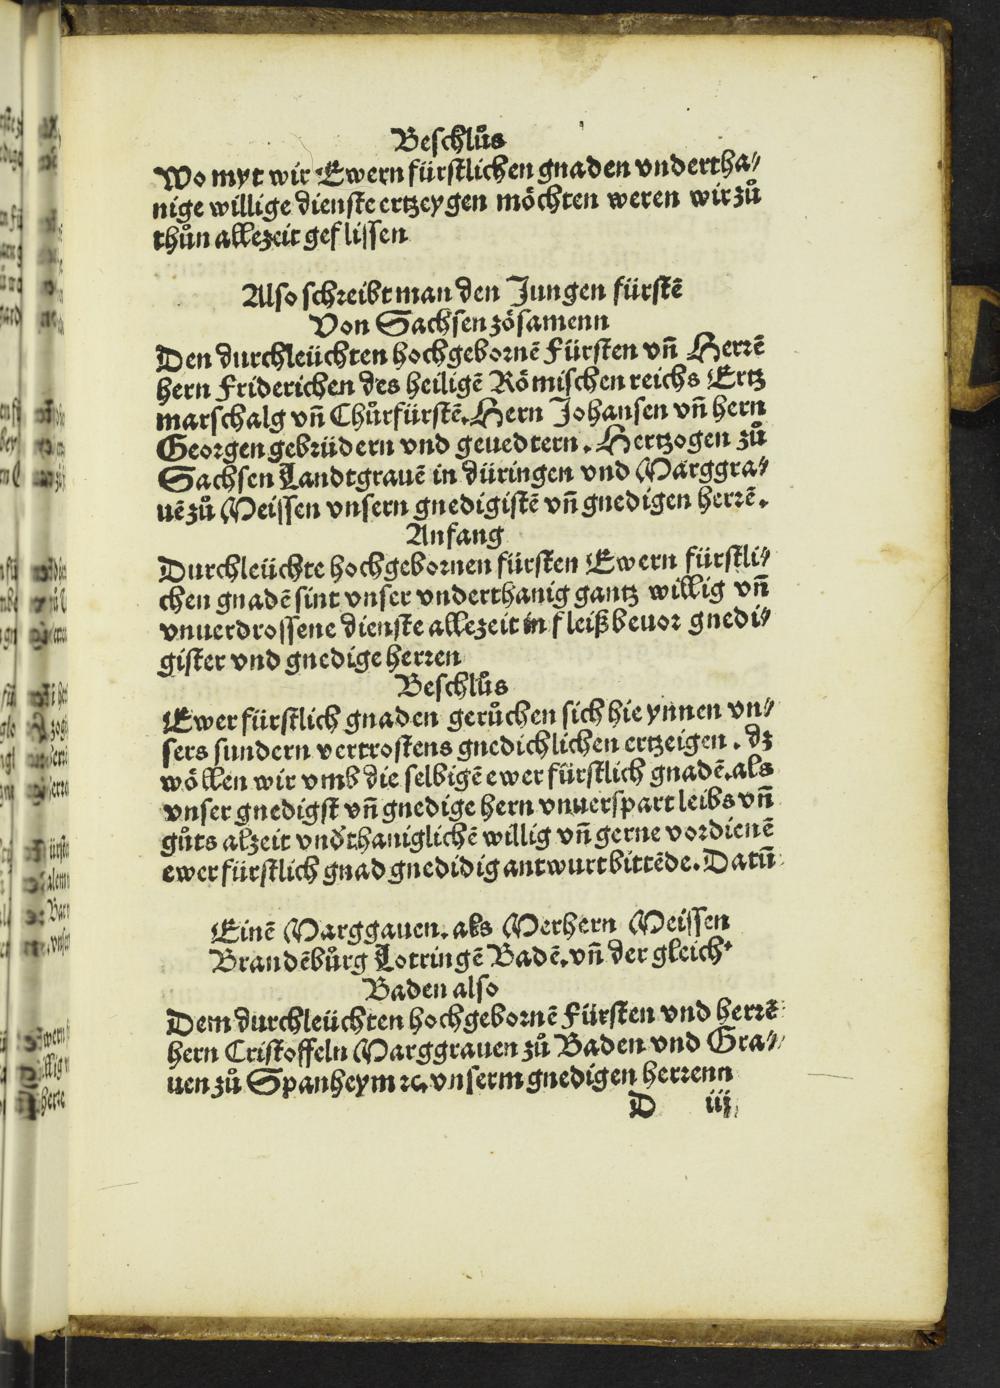 Beschlůs
Wo myt wir Ewern fürstlichen gnaden vndertha⸗
nige willige dienste ertzeygen möchten weren wir zů
thůn allezeit geflissen
Also schreibt man den Jungen fürstē
Von Sachsen zösamenn
Den durchleüchten hochgebornē Fürsten vñ Herrē
hern Friderichen des heiligē Römischen reichs Ertz
marschalg vñ Chůrfürstē. Hern Johansen vñ hern
Georgen gebrüdern vnd geuedtern. Hertzogen zů
Sachsen Landtgrauē in düringen vnd Marggra⸗
uē zů Meissen vnsern gnedigistē vñ gnedigen herrē.
Anfang
Durchleüchte hochgebornen fürsten Ewern fürstli⸗
chen gnadē sint vnser vnderthanig gantz willig vñ
vnuerdrossene dienste allezeit in fleiß beuor gnedi⸗
gister vnd gnedige herren
Beschlůs
Ewer fürstlich gnaden gerůchen sich hie ynnen vn⸗
sers sundern vertrostens gnedichlichen ertzeigen. dz
wöllen wir vmb die selbigē ewer fürstlich gnadē. als
vnser gnedigst vñ gnedige hern vnuerspart leibs vñ
gůts alzeit vnďthaniglichē willig vñ gerne vordienē
ewer fürstlich gnad gnedidig antwurt bittēde. Datū
Einē Marggauen. als Merhern Meissen
Brandēbůrg Lotringē Badē. vñ der gleich⁺
Baden also
Dem durchleüchten hochgebornē Fürsten vnd herrē
hern Cristoffeln Marggrauen zů Baden vnd Gra⸗
uen zů Spanheym ꝛc. vnserm gnedigen herrenn
D iij